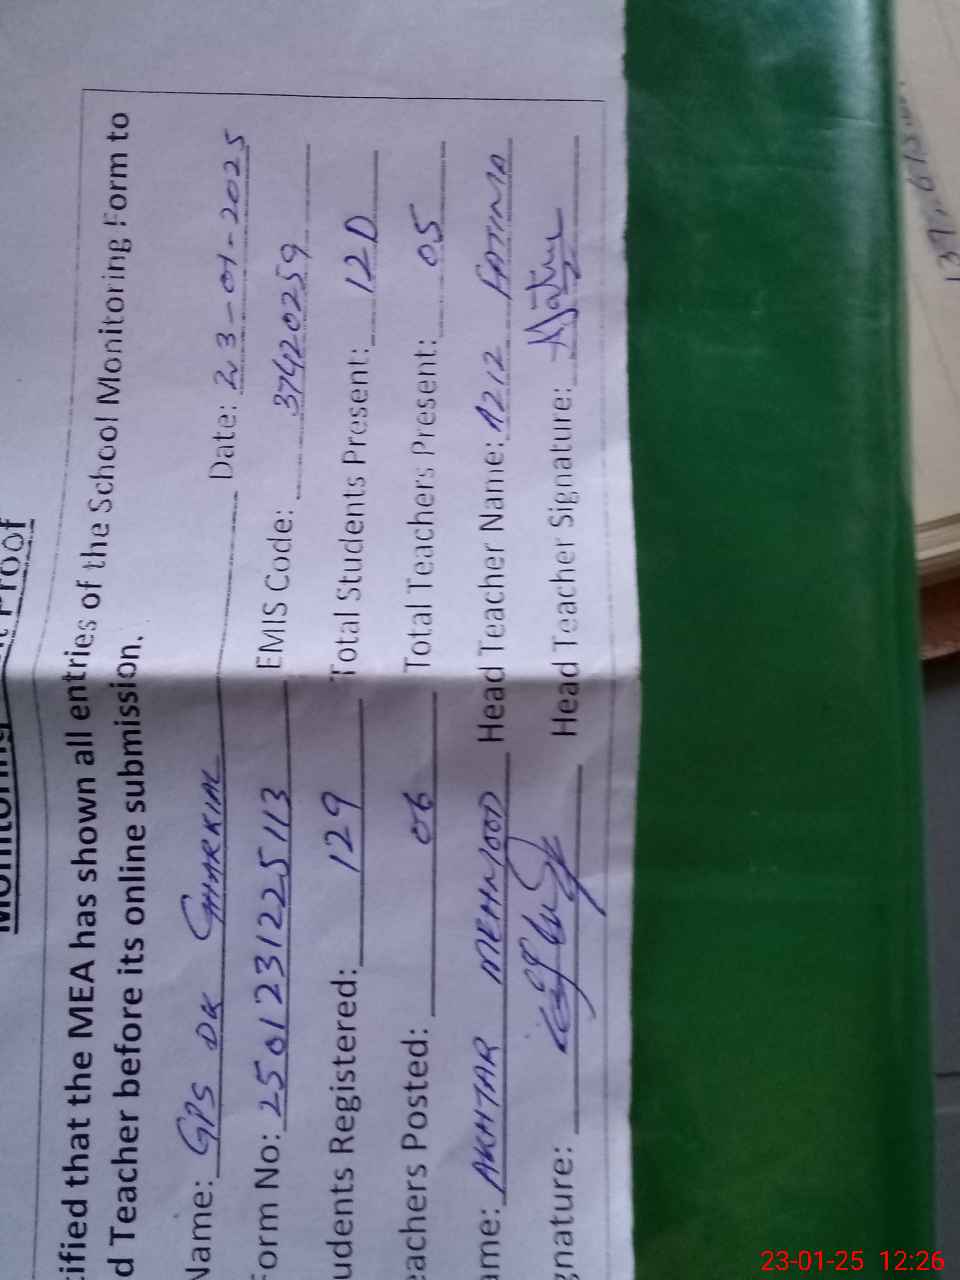 Proof
tified that the MEA has shown all entries of the School Monitoring Form to
d Teacher before its online submission.
Name: GPS DK GHARKIAL Date: 23-01-2025
Form No: 250123122 5113 EMIS Code: 37420259
udents Registered: 129 Total Students Present: 120
eachers Posted: 06 Total Teachers Present: 05
ame: AKHTAR MEHMOOD Head Teacher Name: AZIZ FATIMA
gnature: Head Teacher Signature:
23-01-25 12:26